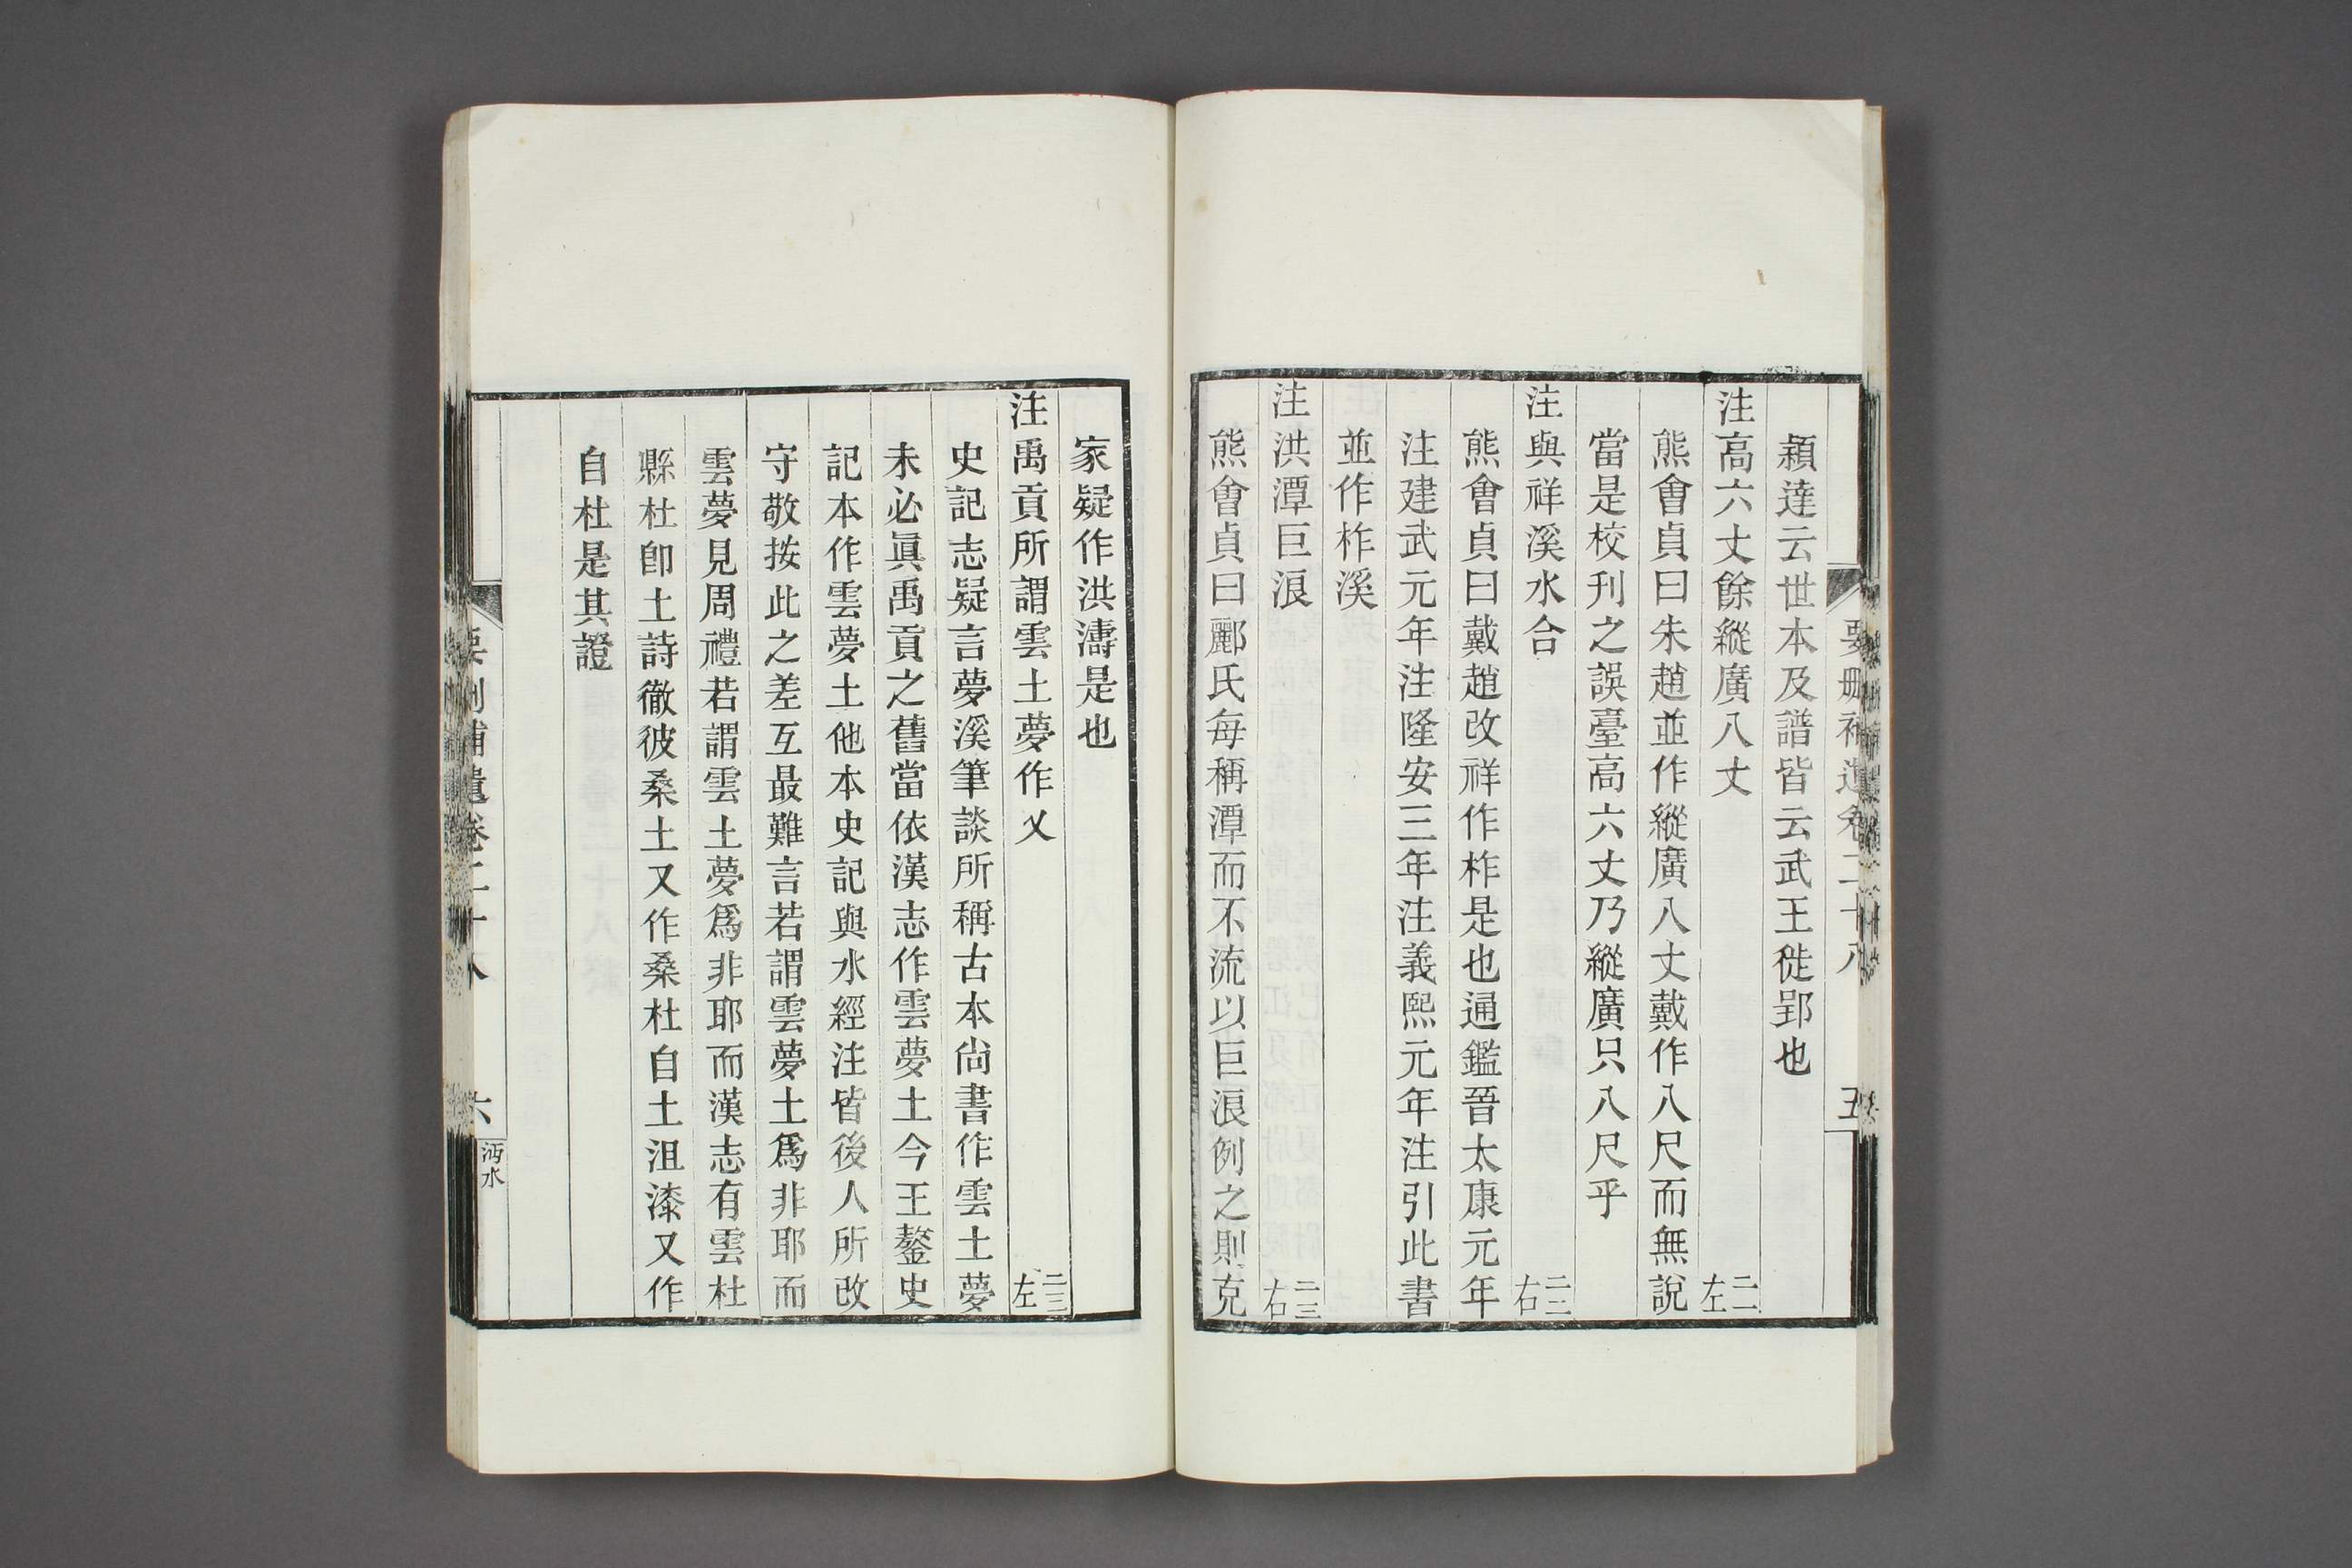 要刪補遺卷二十八
五
穎達云世本及譜皆云武王徙郢也
注高六丈餘縱廣八丈 二二左
熊會貞曰朱趙並作縱廣八丈戴作八尺而無說
當是校刊之誤臺高六丈乃縱廣只八尺乎
注與祥溪水合 二三右
熊會貞曰戴趙改祥作柞是也通鑑晉太康元年
注建武元年注隆安三年注義熙元年注引此書
並作柞溪
注洪潭巨浪 二三右
熊會貞曰酈氏每稱潭而不流以巨浪例之則克
家疑作洪濤是也
注禹貢所謂雲土夢作乂 二三左
史記志疑言夢溪筆談所稱古本尙書作雲土夢
未必眞禹貢之舊當依漢志作雲夢土今王鏊史
記本作雲夢土他本史記與水經注皆後人所改
守敬按此之差互最難言若謂雲夢土爲非耶而
雲夢見周禮若謂雲土夢爲非耶而漢志有雲杜
縣杜卽土詩徹彼桑土又作桑杜自土沮漆又作
自杜是其證
要刪補遺卷二十八
六
沔水